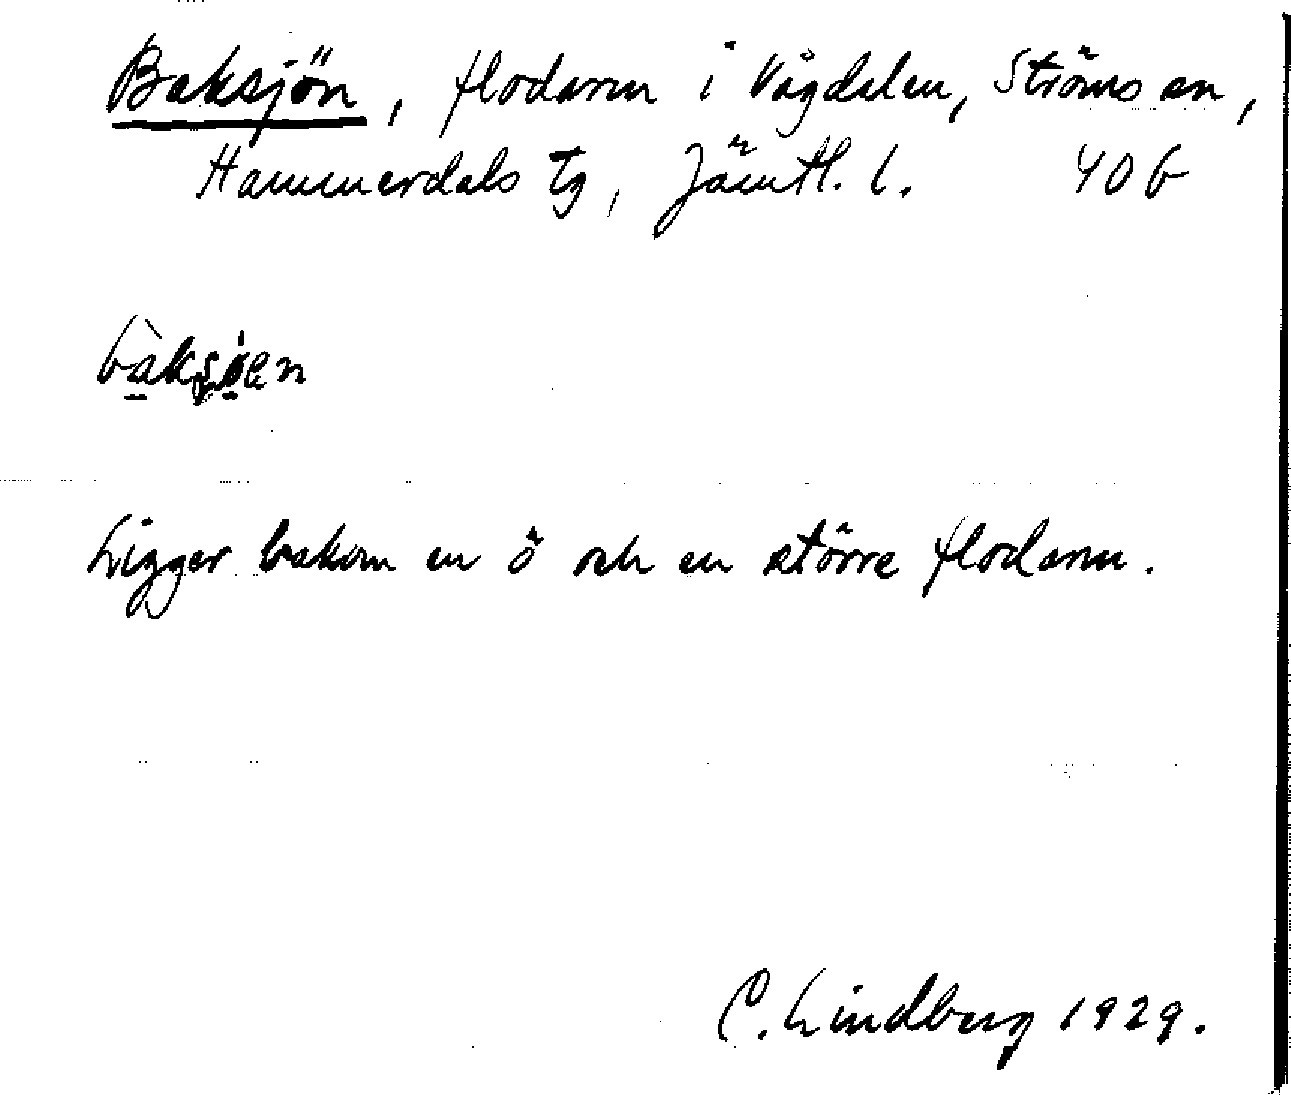 Baksjön, flodarm i Vågdalen, Ströms sn,
Hammerdals tg, Jämtl. l. 40 b
Ligger bakom en ö och en större flodarm.
C. Lindberg 1929.